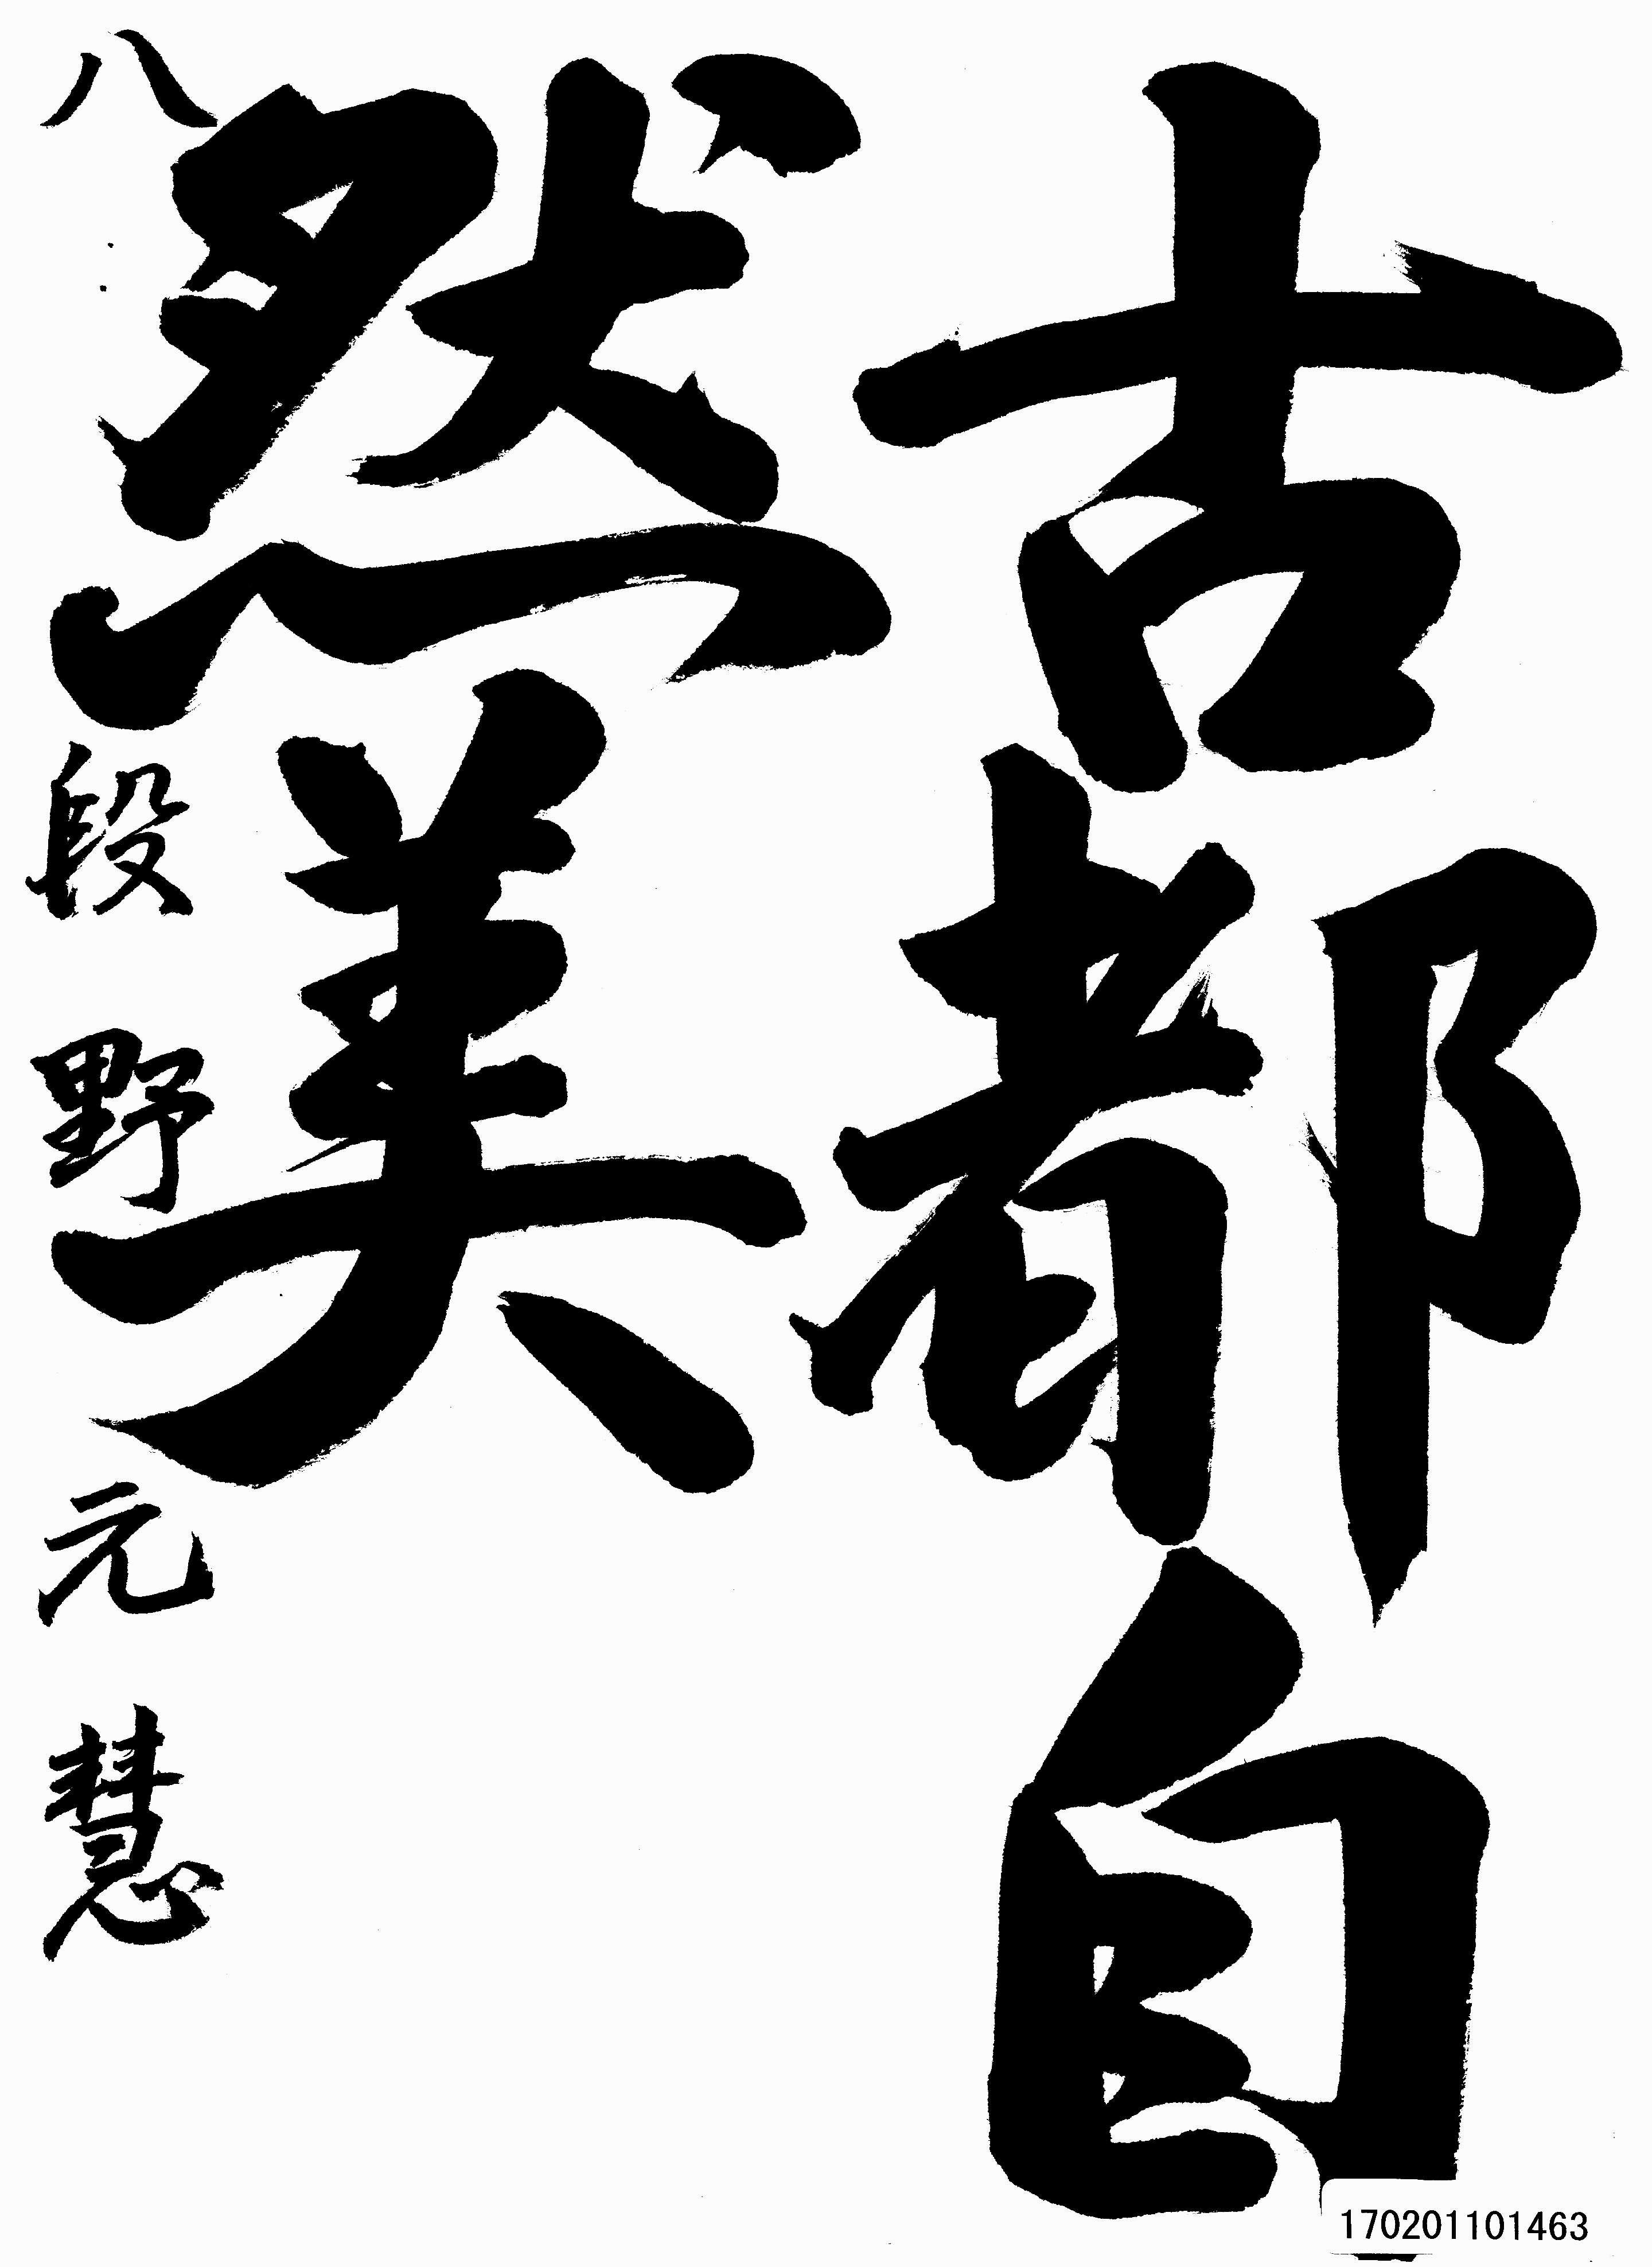 古都自
然美
八段 野元慧
170201101463